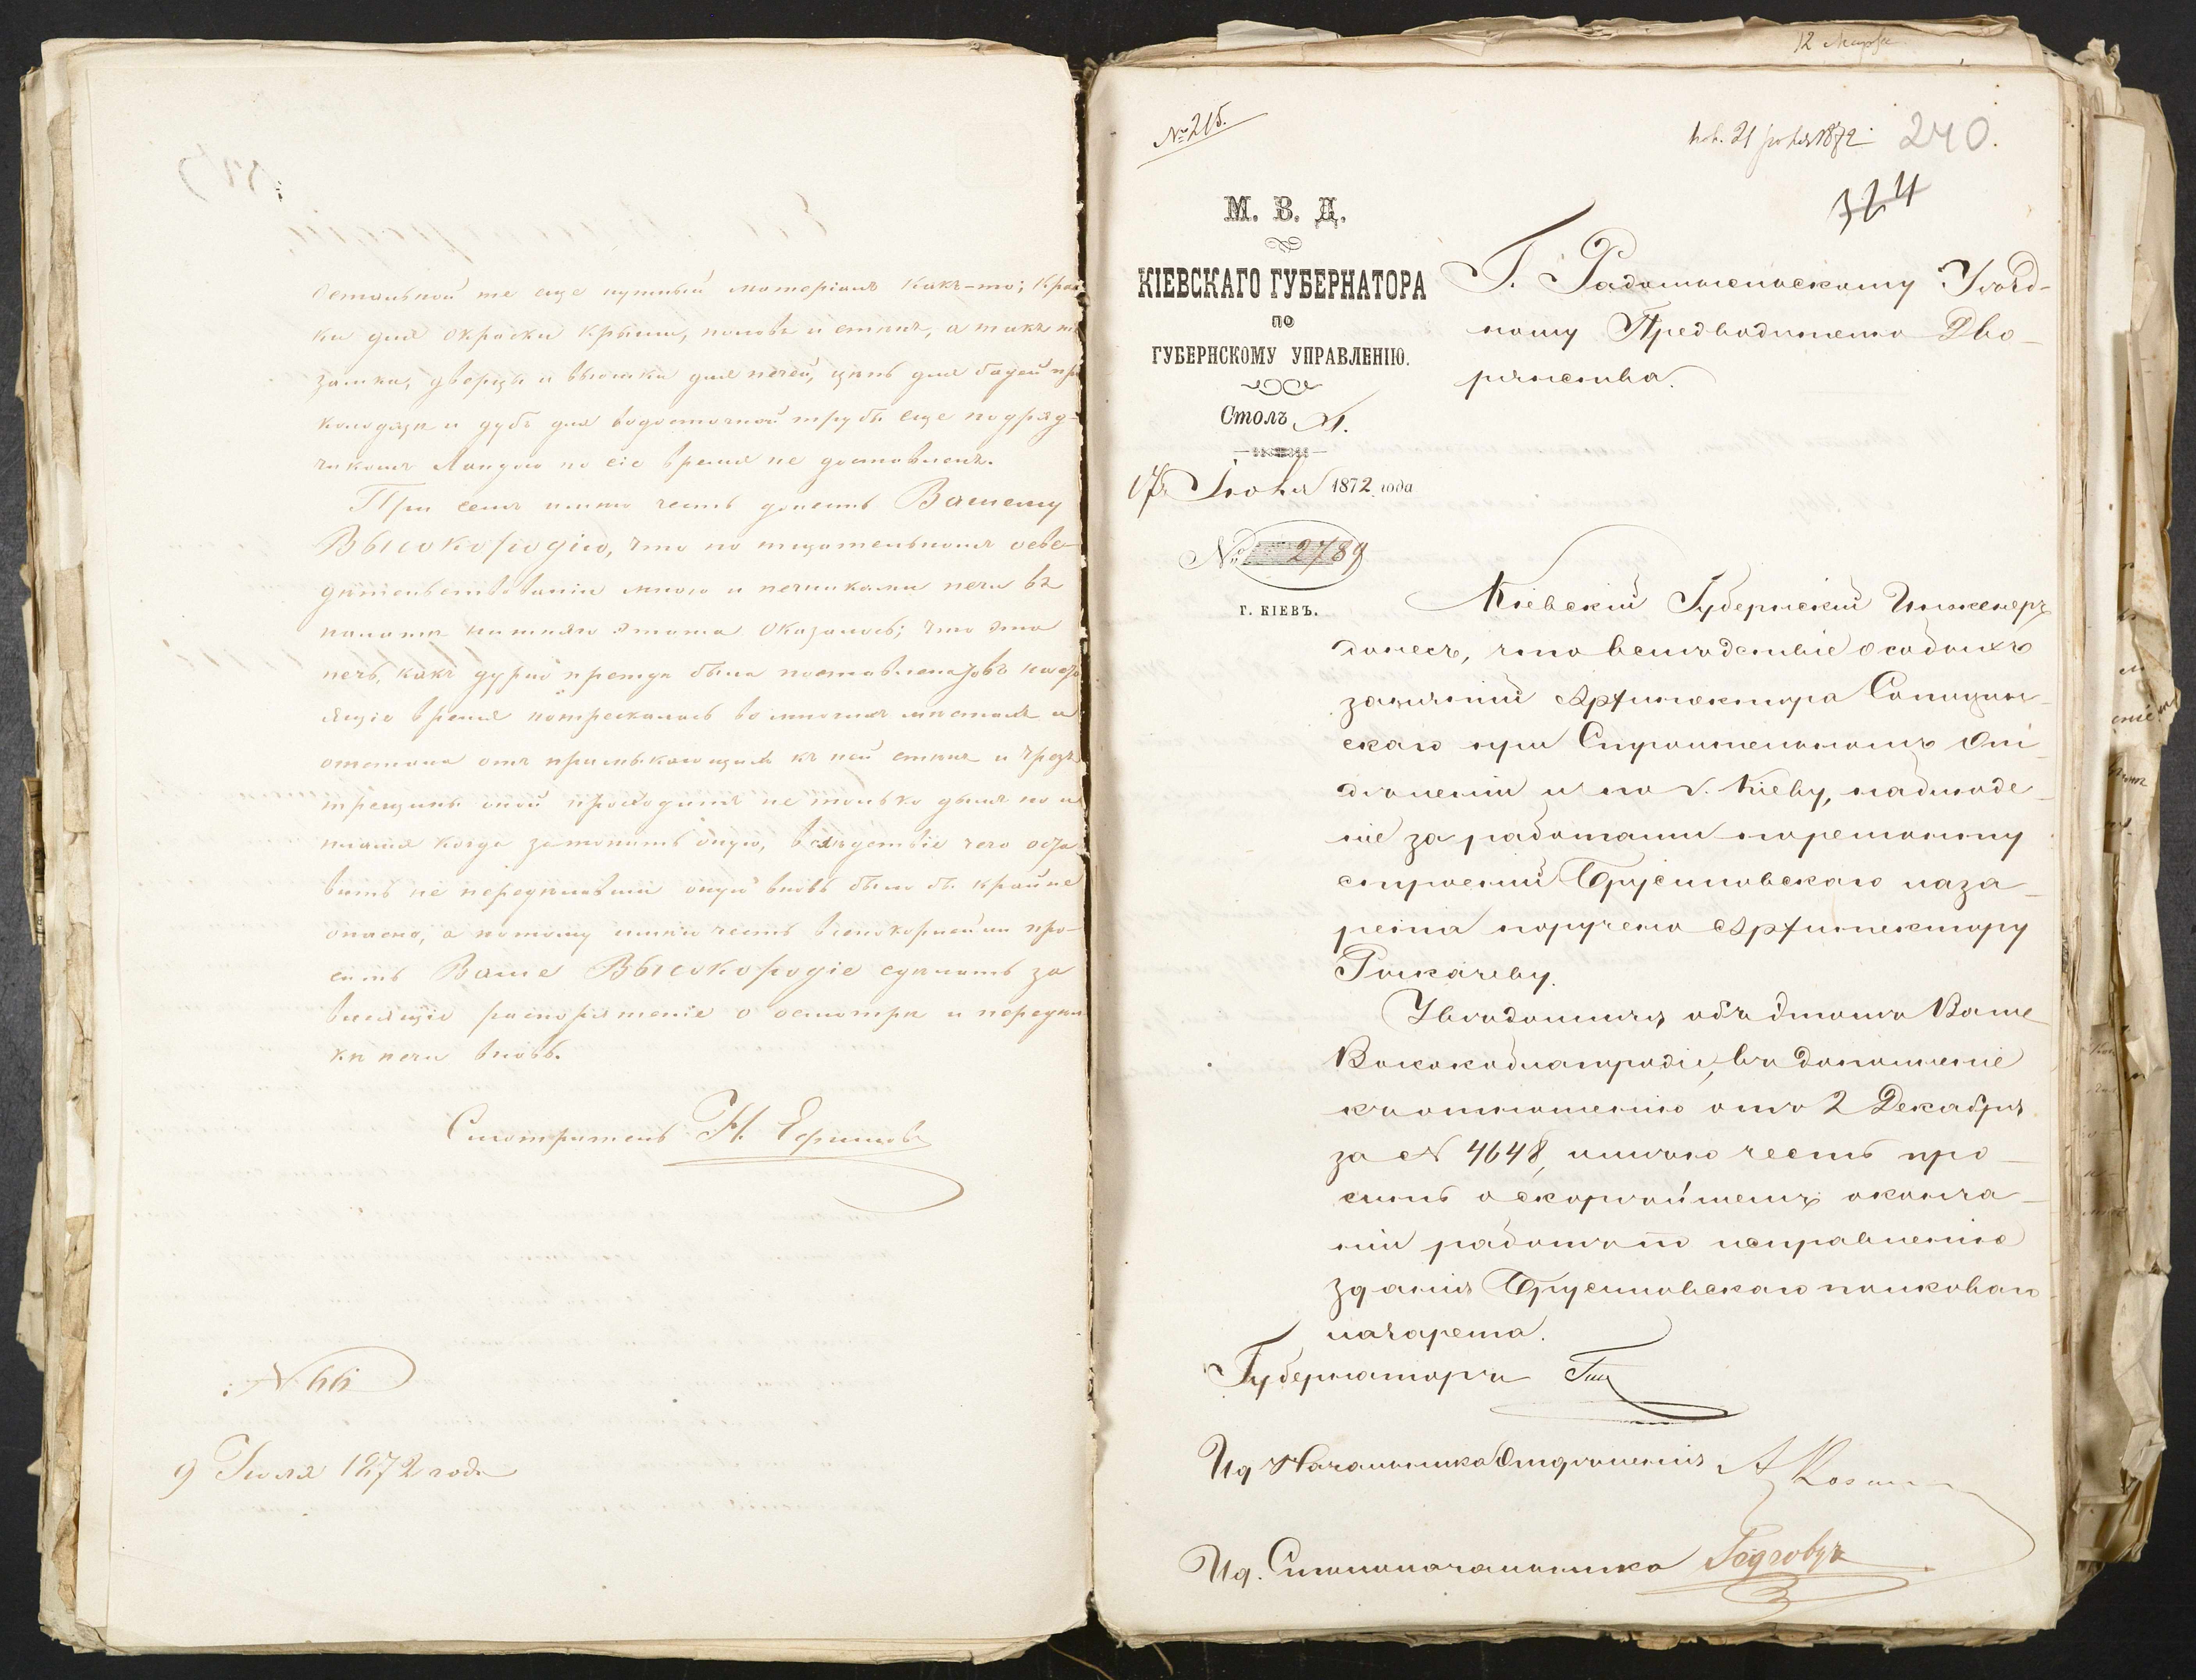 остальной те еще нужный матеріалъ какъ-то; крас
ки для окраски крыши, половъ и стѣнъ, а такъ же
замки, дверцы и вьюшки для печей, цѣпь для бадей при
колодязѣ и дубъ для водосточной трубы еще подряд-
чикомъ по сіе время не доставленъ.
При семъ имѣю честь донесть Вашему
Высокородію, что по тщательномъ осви-
дѣтельствованіи мною и печниками печи въ
палатѣ нижняго этажа оказалось; что эта
печь, какъ дурно прежде была поставлена, въ насто
ящіе время потрескалась во многихъ мѣстахъ и
отстала отъ примыкающихъ къ ней стѣнъ и чрезъ
трещины оной проходитъ не только дымъ но и
пламя когда затопить оную, вслѣдствіе чего оста
вить не передѣлавши оную вновь было бы крайне
опасно, а потому имѣю честь всепокорнѣйше про-
сить Ваше Высокородіе сдѣлать за
висящіе распоряженіе о осмотрѣ и передѣл
кѣ печи вновь.
Смотритель Н. Ефимовъ
№ 66
9 Іюля 1872 года
12 Марта
№ 215.
пол. 21 Іюня 1872
240.
324
М. В. Д.
КІЕВСКАГО ГУБЕРНАТОРА
ПО
ГУБЕРНСКОМУ УПРАВЛЕНІЮ.
Столъ 1.
17 Іюня 1872 года
№ 2789
Г. КІЕВЪ.
Г. Радомысльскому Уѣзд-
ному Предводителю Дво-
рянства.
Кіевскій Губернскій Инженеръ
донесъ, что вслѣдствіе особыхъ
занятій Архитектора Сотицин-
скаго при Строительномъ От-
дѣленіи и по г. Кіеву, наблюде-
ніе за работами по ремонту
строеній Брусиловскаго лаза-
рета поручено Архитектору
Рыкачеву.
Увѣдомляя объ этомъ Ваше
Высокоблагородіе, въ дополненіе
къ отношенію отъ 2 Декабря
за № 4648, имѣю честь про-
сить о скорѣйшемъ оконча-
ніи работъ по исправленію
зданія Брусиловскаго полковаго
лазарета.
Губернаторъ
Ид Начальника Отдѣленія
Ид. Столоначальника